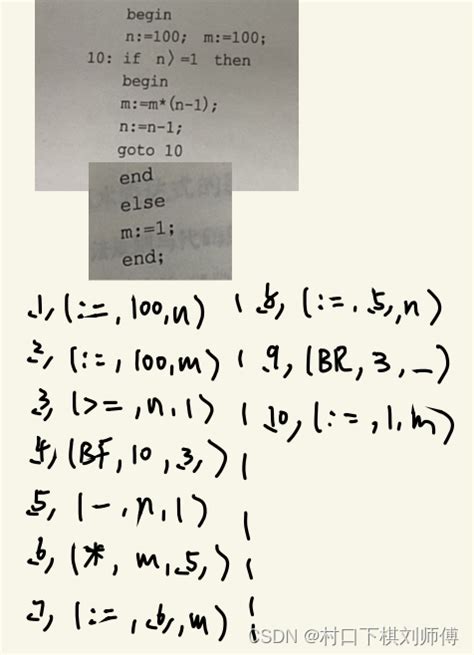 begin
n:=100; m:=100;
10: if n〉=1 then
begin
m:=m*(n-1);
n:=n-1;
goto 10
end
else
m:=1;
end;
1, (:=, 100, n)
2, (:=, 100, m)
3, (>=, n, 1)
4, (BF, 10, 3,)
5, (-, n, 1)
6, (*, m, 5,)
7, (:=, 6, m)
8, (:=, 5, n)
9, (BR, 3, _)
10, (:=, 1, m)
CSDN @村口下棋刘师傅